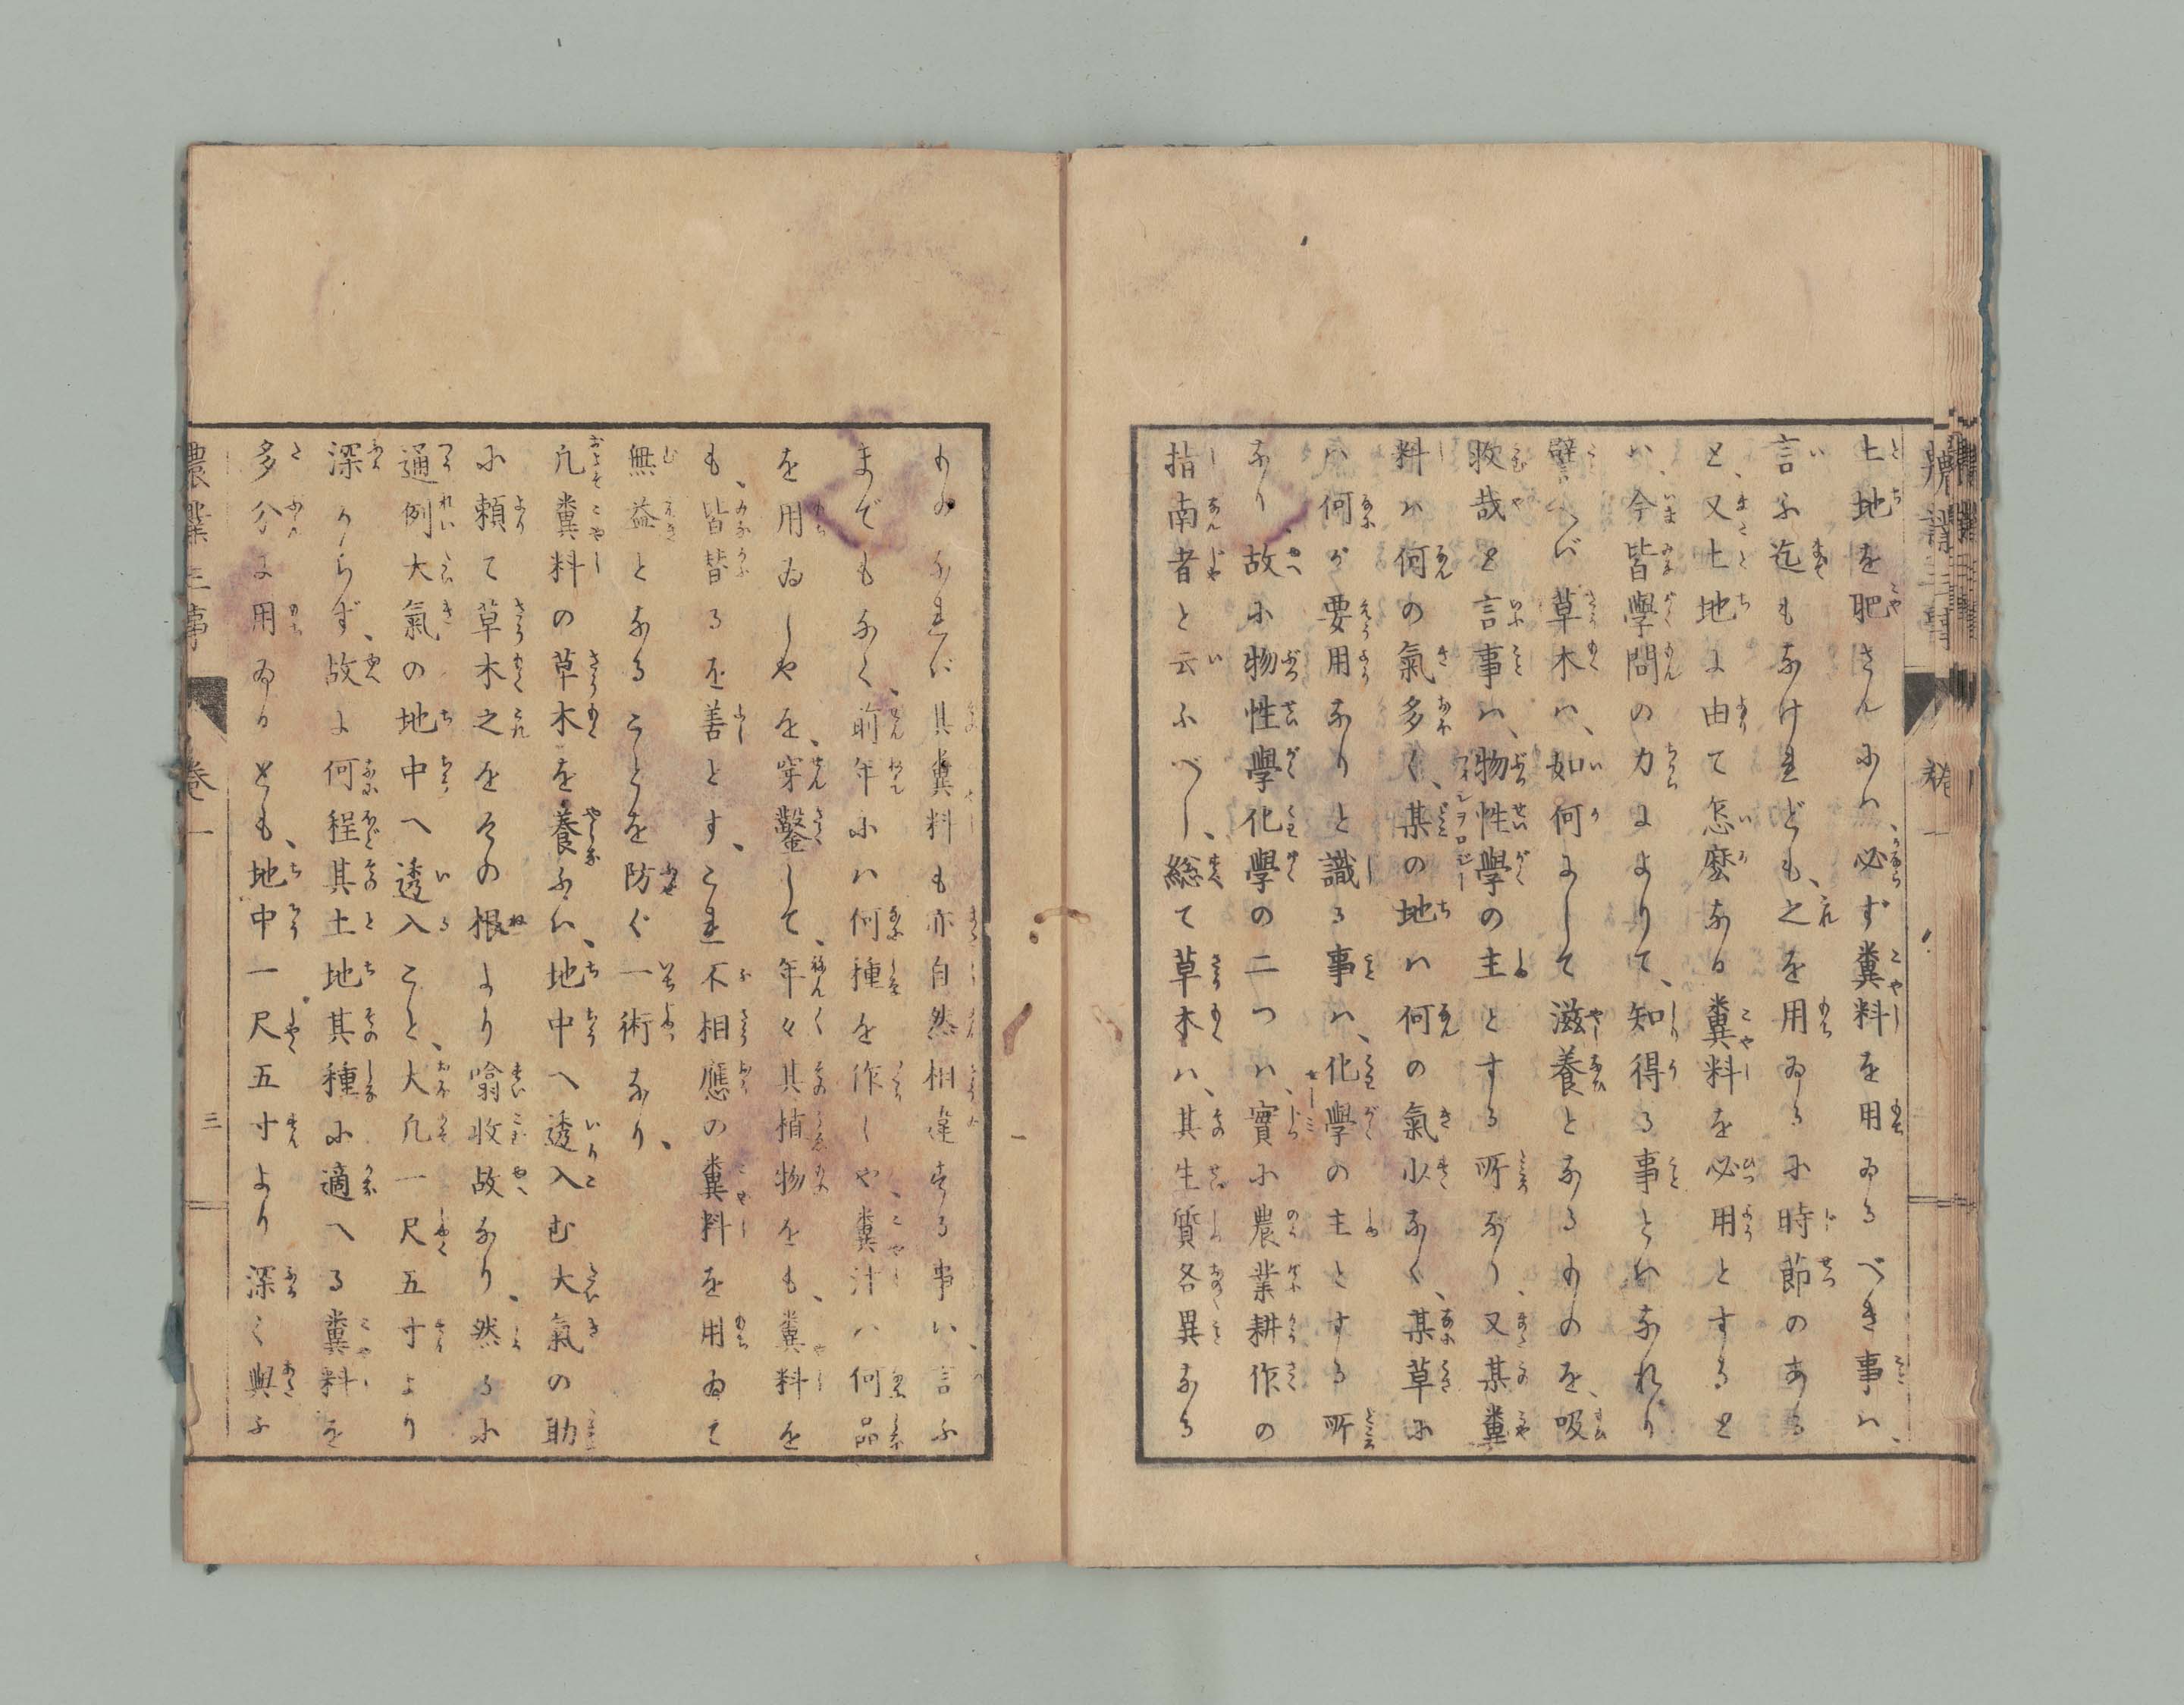 土地を肥さんにハ、必ず糞料を用ゐるべき事ハ、
言ふ迄もなけれども、之を用ゐるに時節のある
と、又土地に由て怎麽なる糞料を必用とすると
ハ、今皆學問の力によりて、知得る事とハなれり
譬へバ草木ハ、如何にして滋養となるものを、吸
收哉と言事ハ、物性學の主とする所なり、又某糞
料ハ何の氣多く、某の地ハ何の氣少なく、某草に
ハ何が要用なりと識る事ハ、化學の主とする所
なり、故に物性學化學の二つハ、實に農業耕作の
指南者と云ふべし、総て草木ハ、其生質各異なる
ものなれバ、其糞料も亦自然相違する事ハ、言ふ
までもなく、前年にハ何種を作しや、糞汁ハ何品
を用ゐしやを、穿鑿して、年々其植物をも、糞料を
も、皆替るを善とす、これ不相應の糞料を用ゐて
無益となることを防ぐ一術なり、
凡糞料の草木を養ふハ、地中へ透入む大氣の助
に頼て草木之をその根より噏收故なり、然るに
通例大氣の地中へ透入こと、大凡一尺五寸より
深からず、故に何程其土地其種に適へる糞料を
多分に用ゐるとも、地中一尺五寸より深く與ふ
農業三事 卷一 三